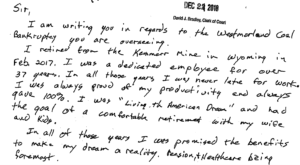 DEC 21 2018
David J. Bradley, Clerk of Court
Sir,
I am writing you in regards to the Westmorland Coal
Bankruptcy you are overseeing.
I retired from the Kemmerer mine in Wyoming in
Feb 2017. I was a dedicated employee for over
37 years. In all those years I was never late for work
I was always proud of my productivity and always
gave 100%. I was "Living th American Dream" and had
the goal of a comfortable retirement with my wife
and Kids.
In all of those years I was promised the benefits
to make my dream a reality. Pension & Healthcare being
foremost.